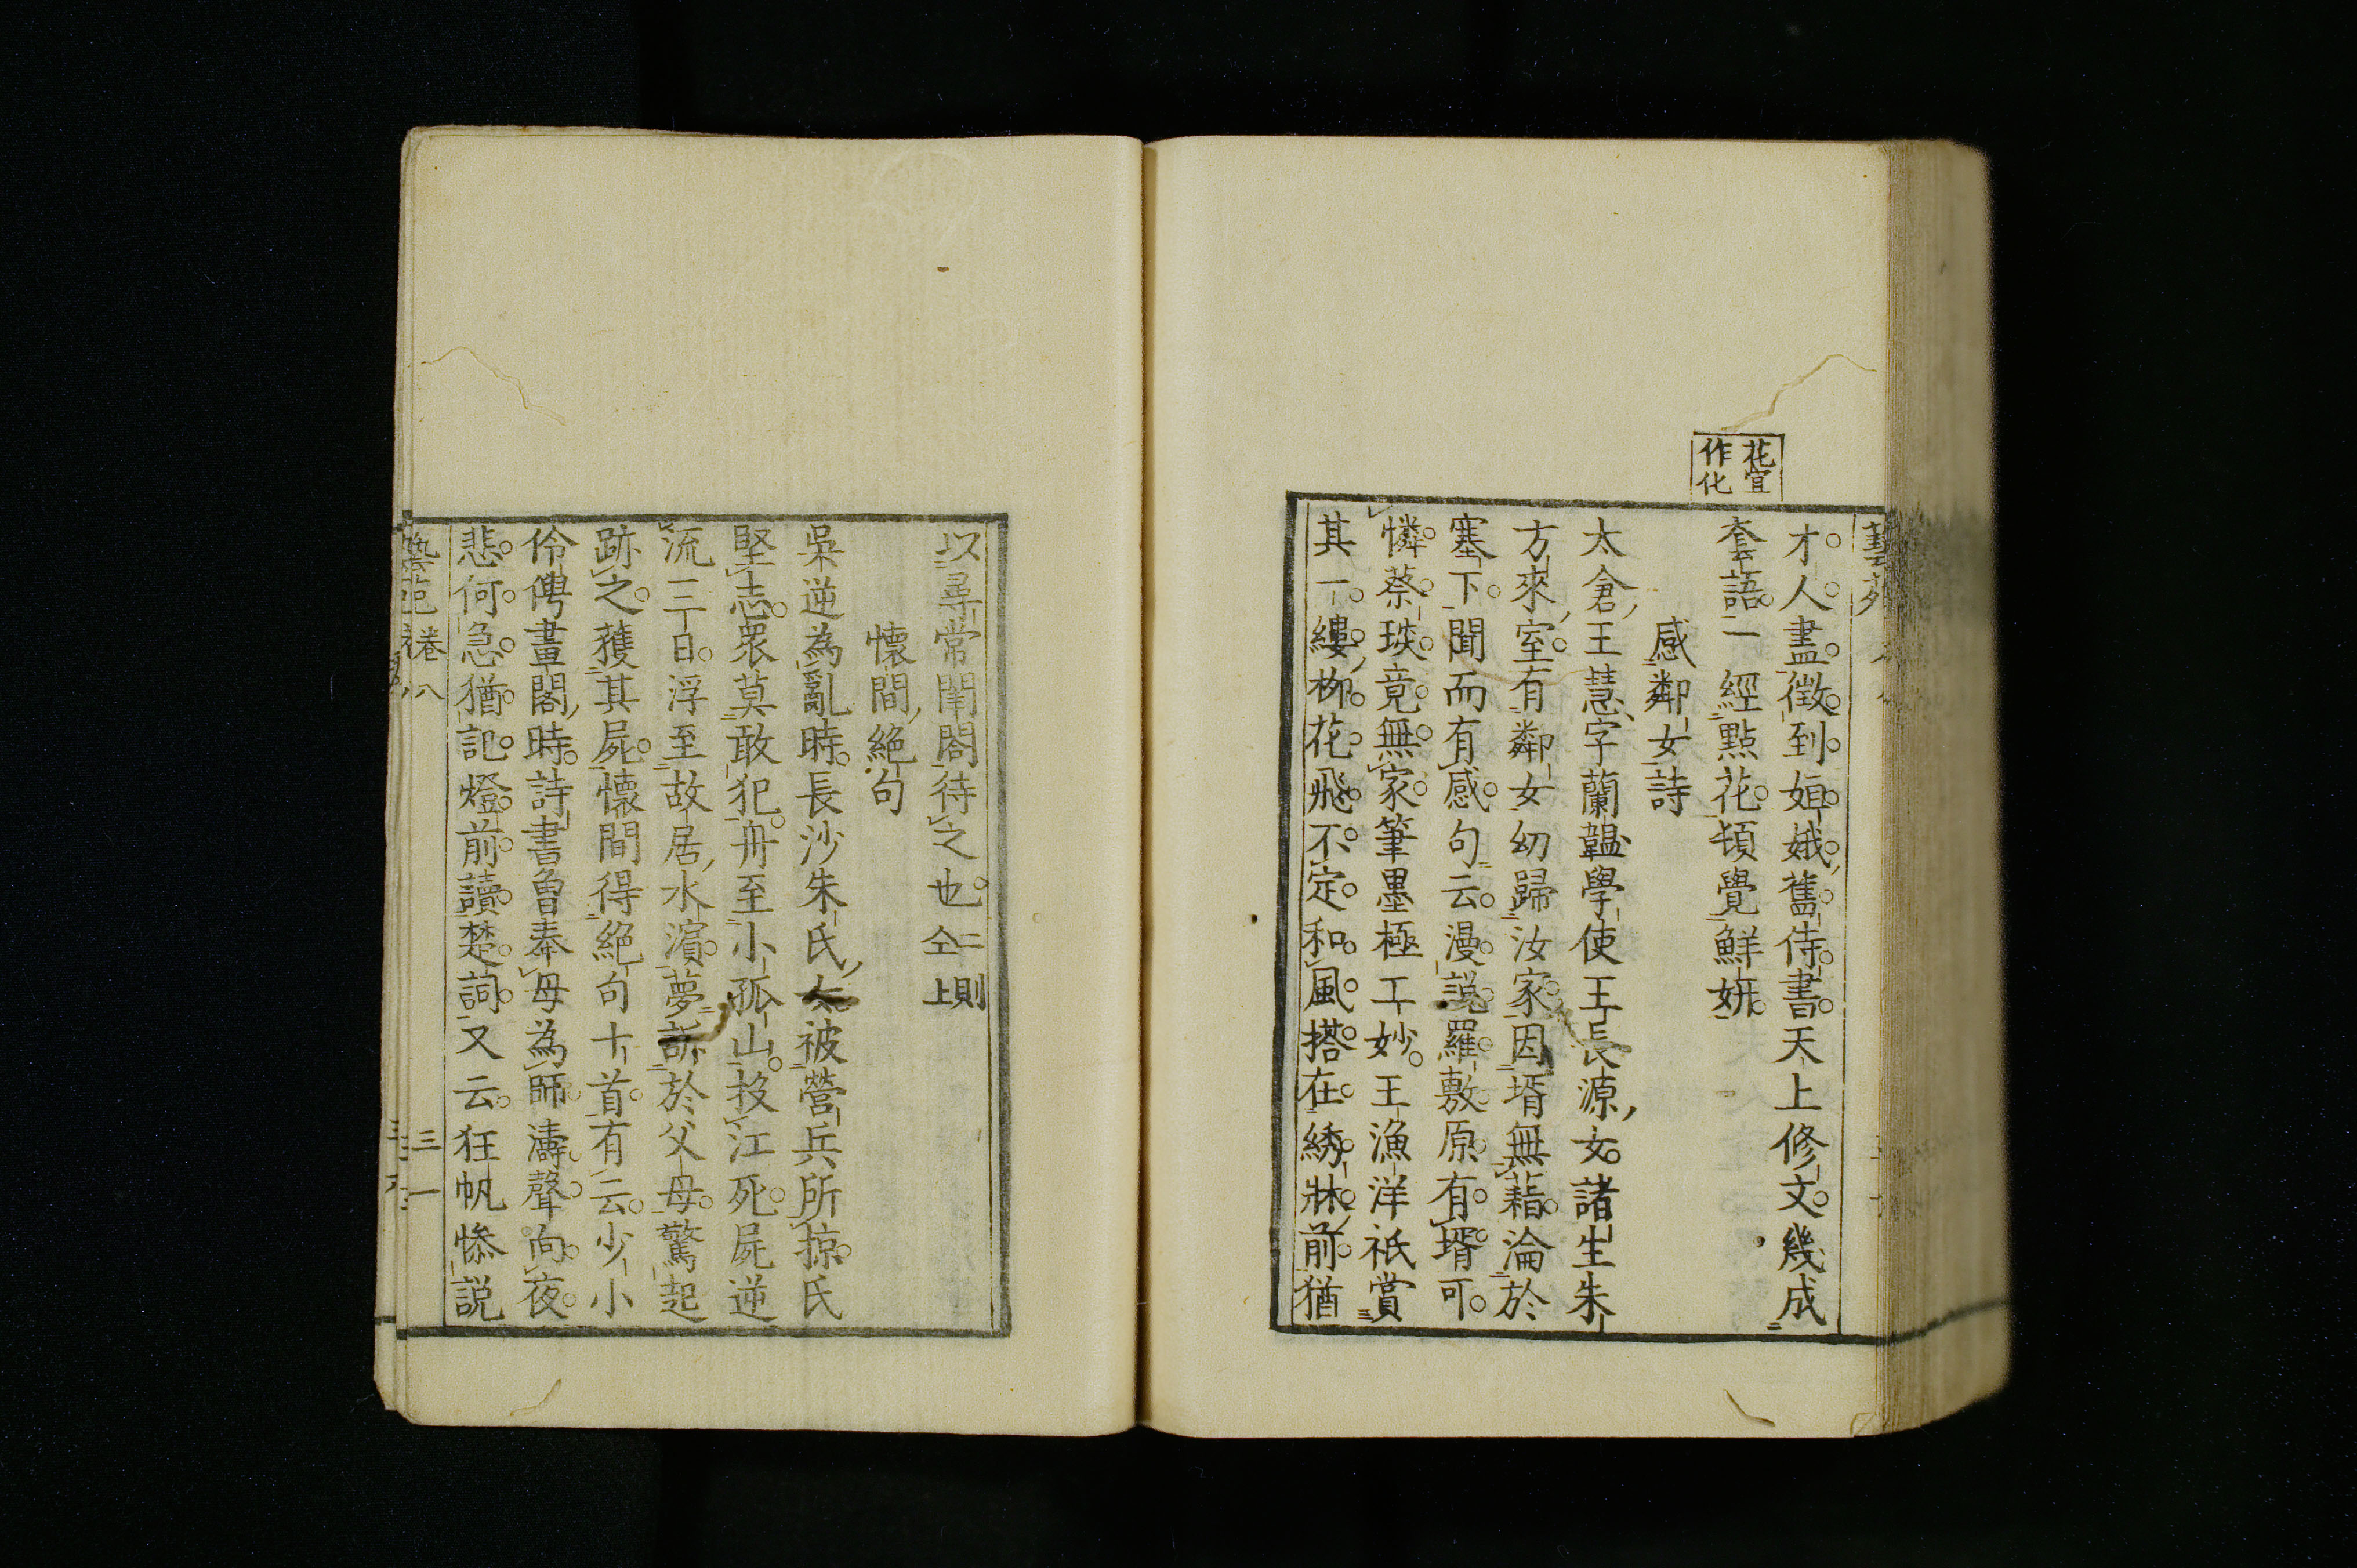 花宜
作化
才人盡徵到姮娥舊侍書天上修文幾成
套語一經點花頓覺鮮妍
感鄰女詩
太倉王慧字蘭韞學使王長源女諸生朱
方來室有鄰女幼歸汝家因壻無藉淪於
塞下聞而有感句云漫說羅敷原有壻可
憐蔡琰竟無家筆墨極工妙王漁洋祇賞
其一縷柳花飛不定和風搭在綉牀前猶
以尋常閨閤待之也二則仝上
懷間絕句
吳逆為亂時長沙朱氏女被營兵所掠氏
堅志眾莫敢犯舟至小孤山投江死屍逆
流三日浮至故居水濱夢訴於父母驚起
跡之獲其屍懷間得絕句十首有云少小
伶俜畫閣時詩書曾奉母為師濤聲向夜
悲何急猶記燈前讀楚詞又云狂帆慘說
藝苑 卷八 三一